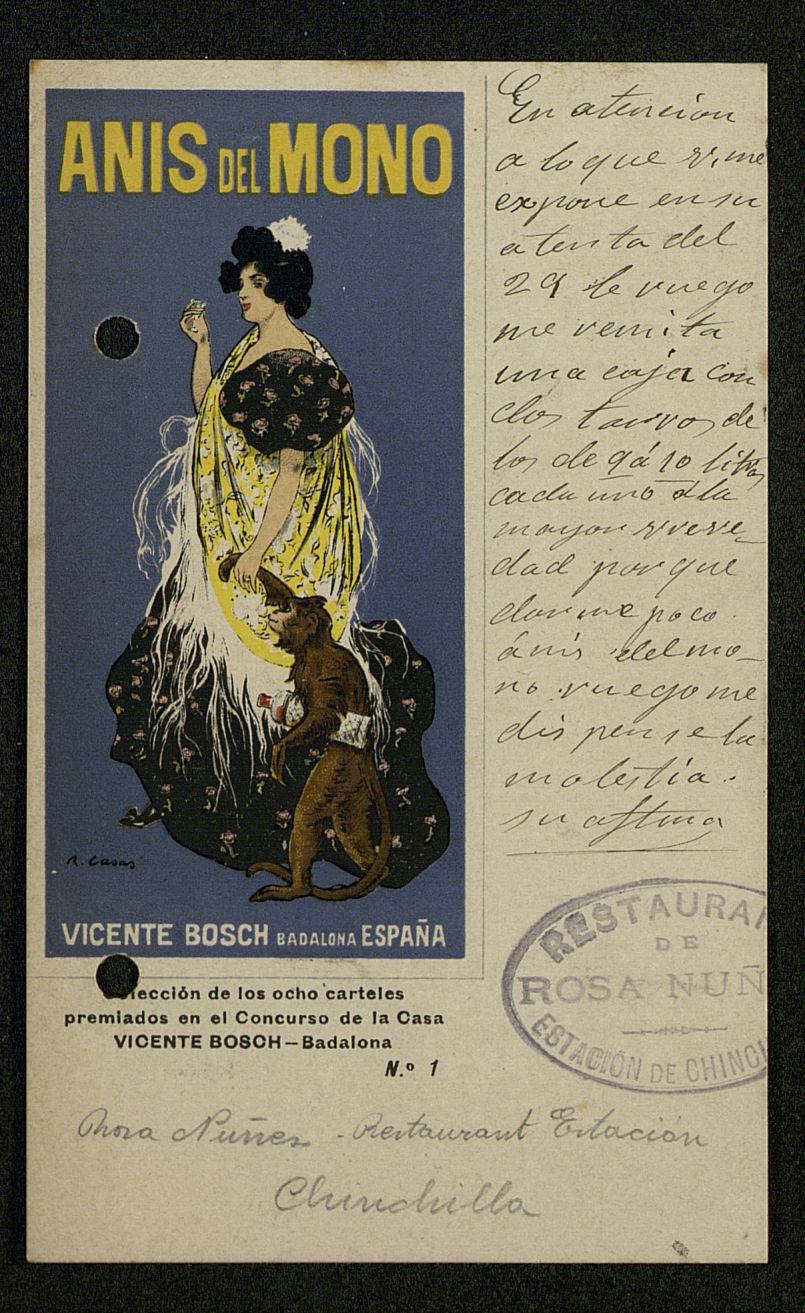 ANIS DEL MONO
R. Casas
VICENTE BOSCH BADALONA ESPAÑA
Colección de los ocho carteles
premiados en el Concurso de la Casa
VICENTE BOSCH — Badalona
N.º 1
En atencion
a lo que V. me
expone en su
atenta del
29 le ruego
me remita
una caja con
dos tarros de
los de 9 á 10 litros
cada uno á la
mayor
dad por que
poco
ánis del mo-
no ruego me
dispense la
molestia.
su aftma
RESTAURA
DE
ROSA NUÑ
ESTACIÓN DE CHINC
Rosa Nuñez - Restaurant Estación
Chinchilla